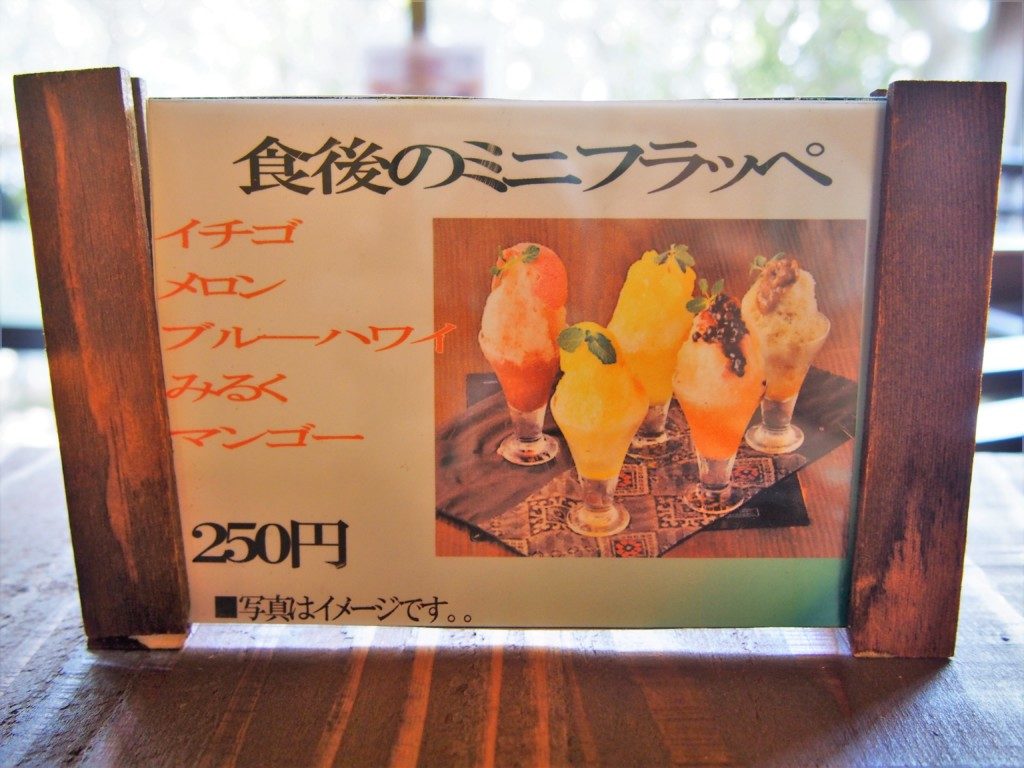 食後のミニフラッペ
イチゴ
メロン
ブルーハワイ
みるく
マンゴー
250円
■写真はイメージです。。